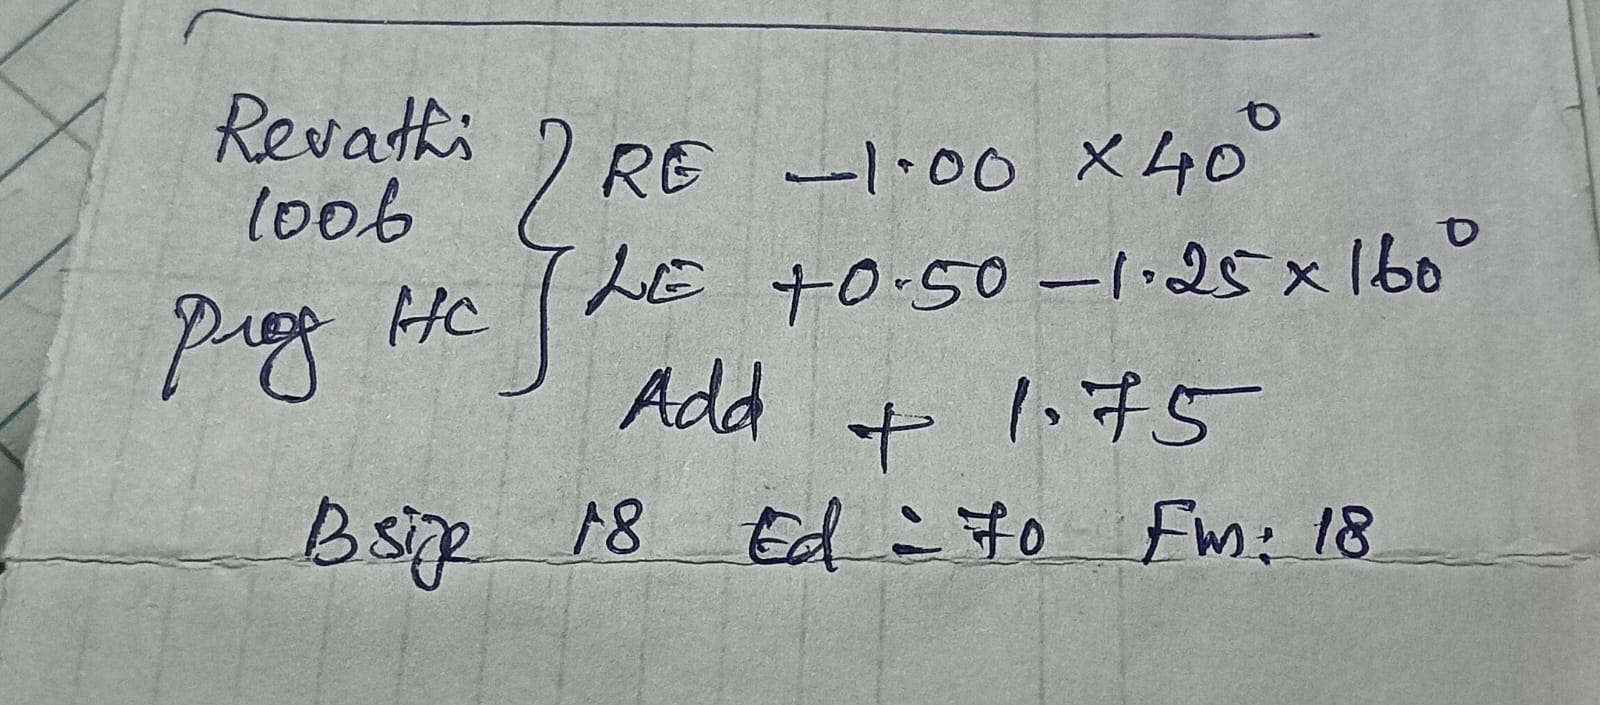 Revathi
1006
Prog HC
RE -1.00 x 40°
LE +0.50 -1.25 x 160°
Add + 1.75
B size 18 Ed = 70 Fm: 18